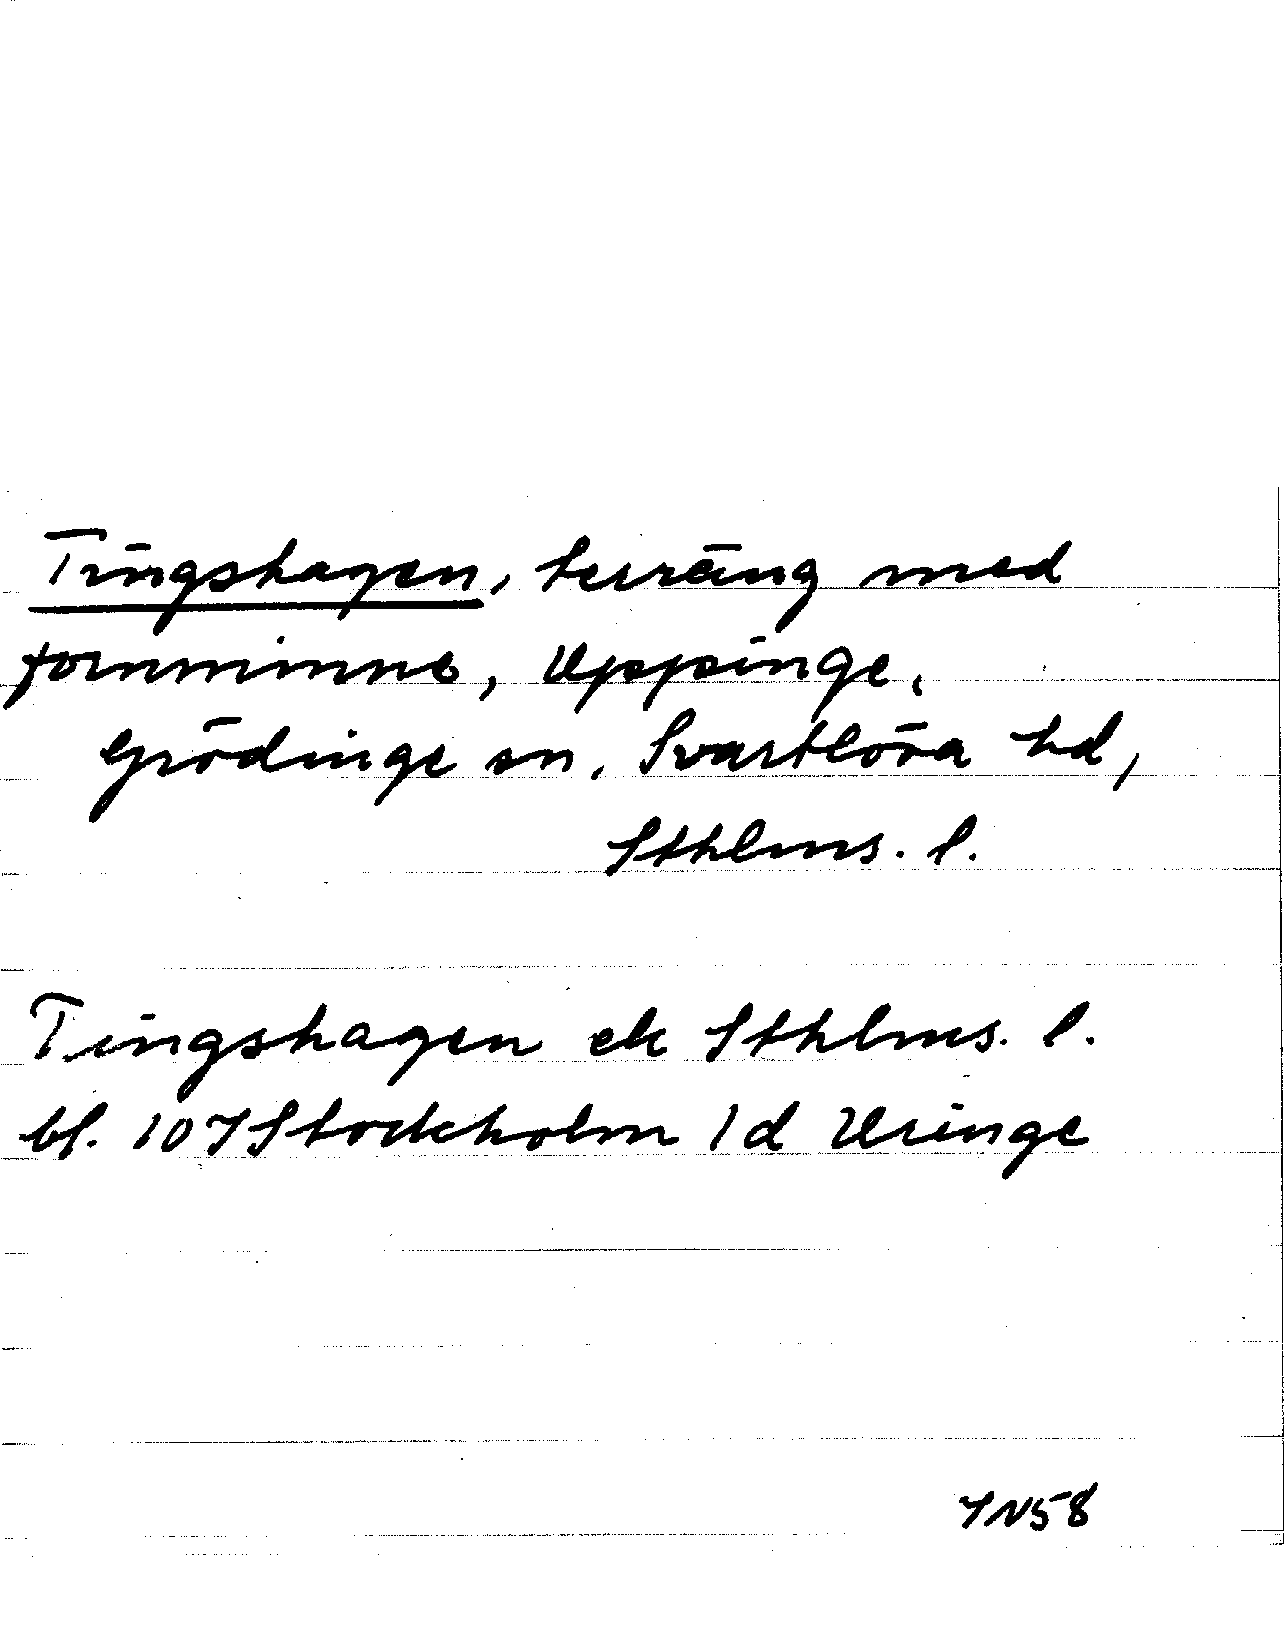 Tingshagen, terräng med
fornminne, Uppinge,
Grödinge sn, Svartlösa hd,
Sthlms. l.
Tingshagen ek Sthlms. l.
bl. 107 Stockholm 1d Uringe
YN58